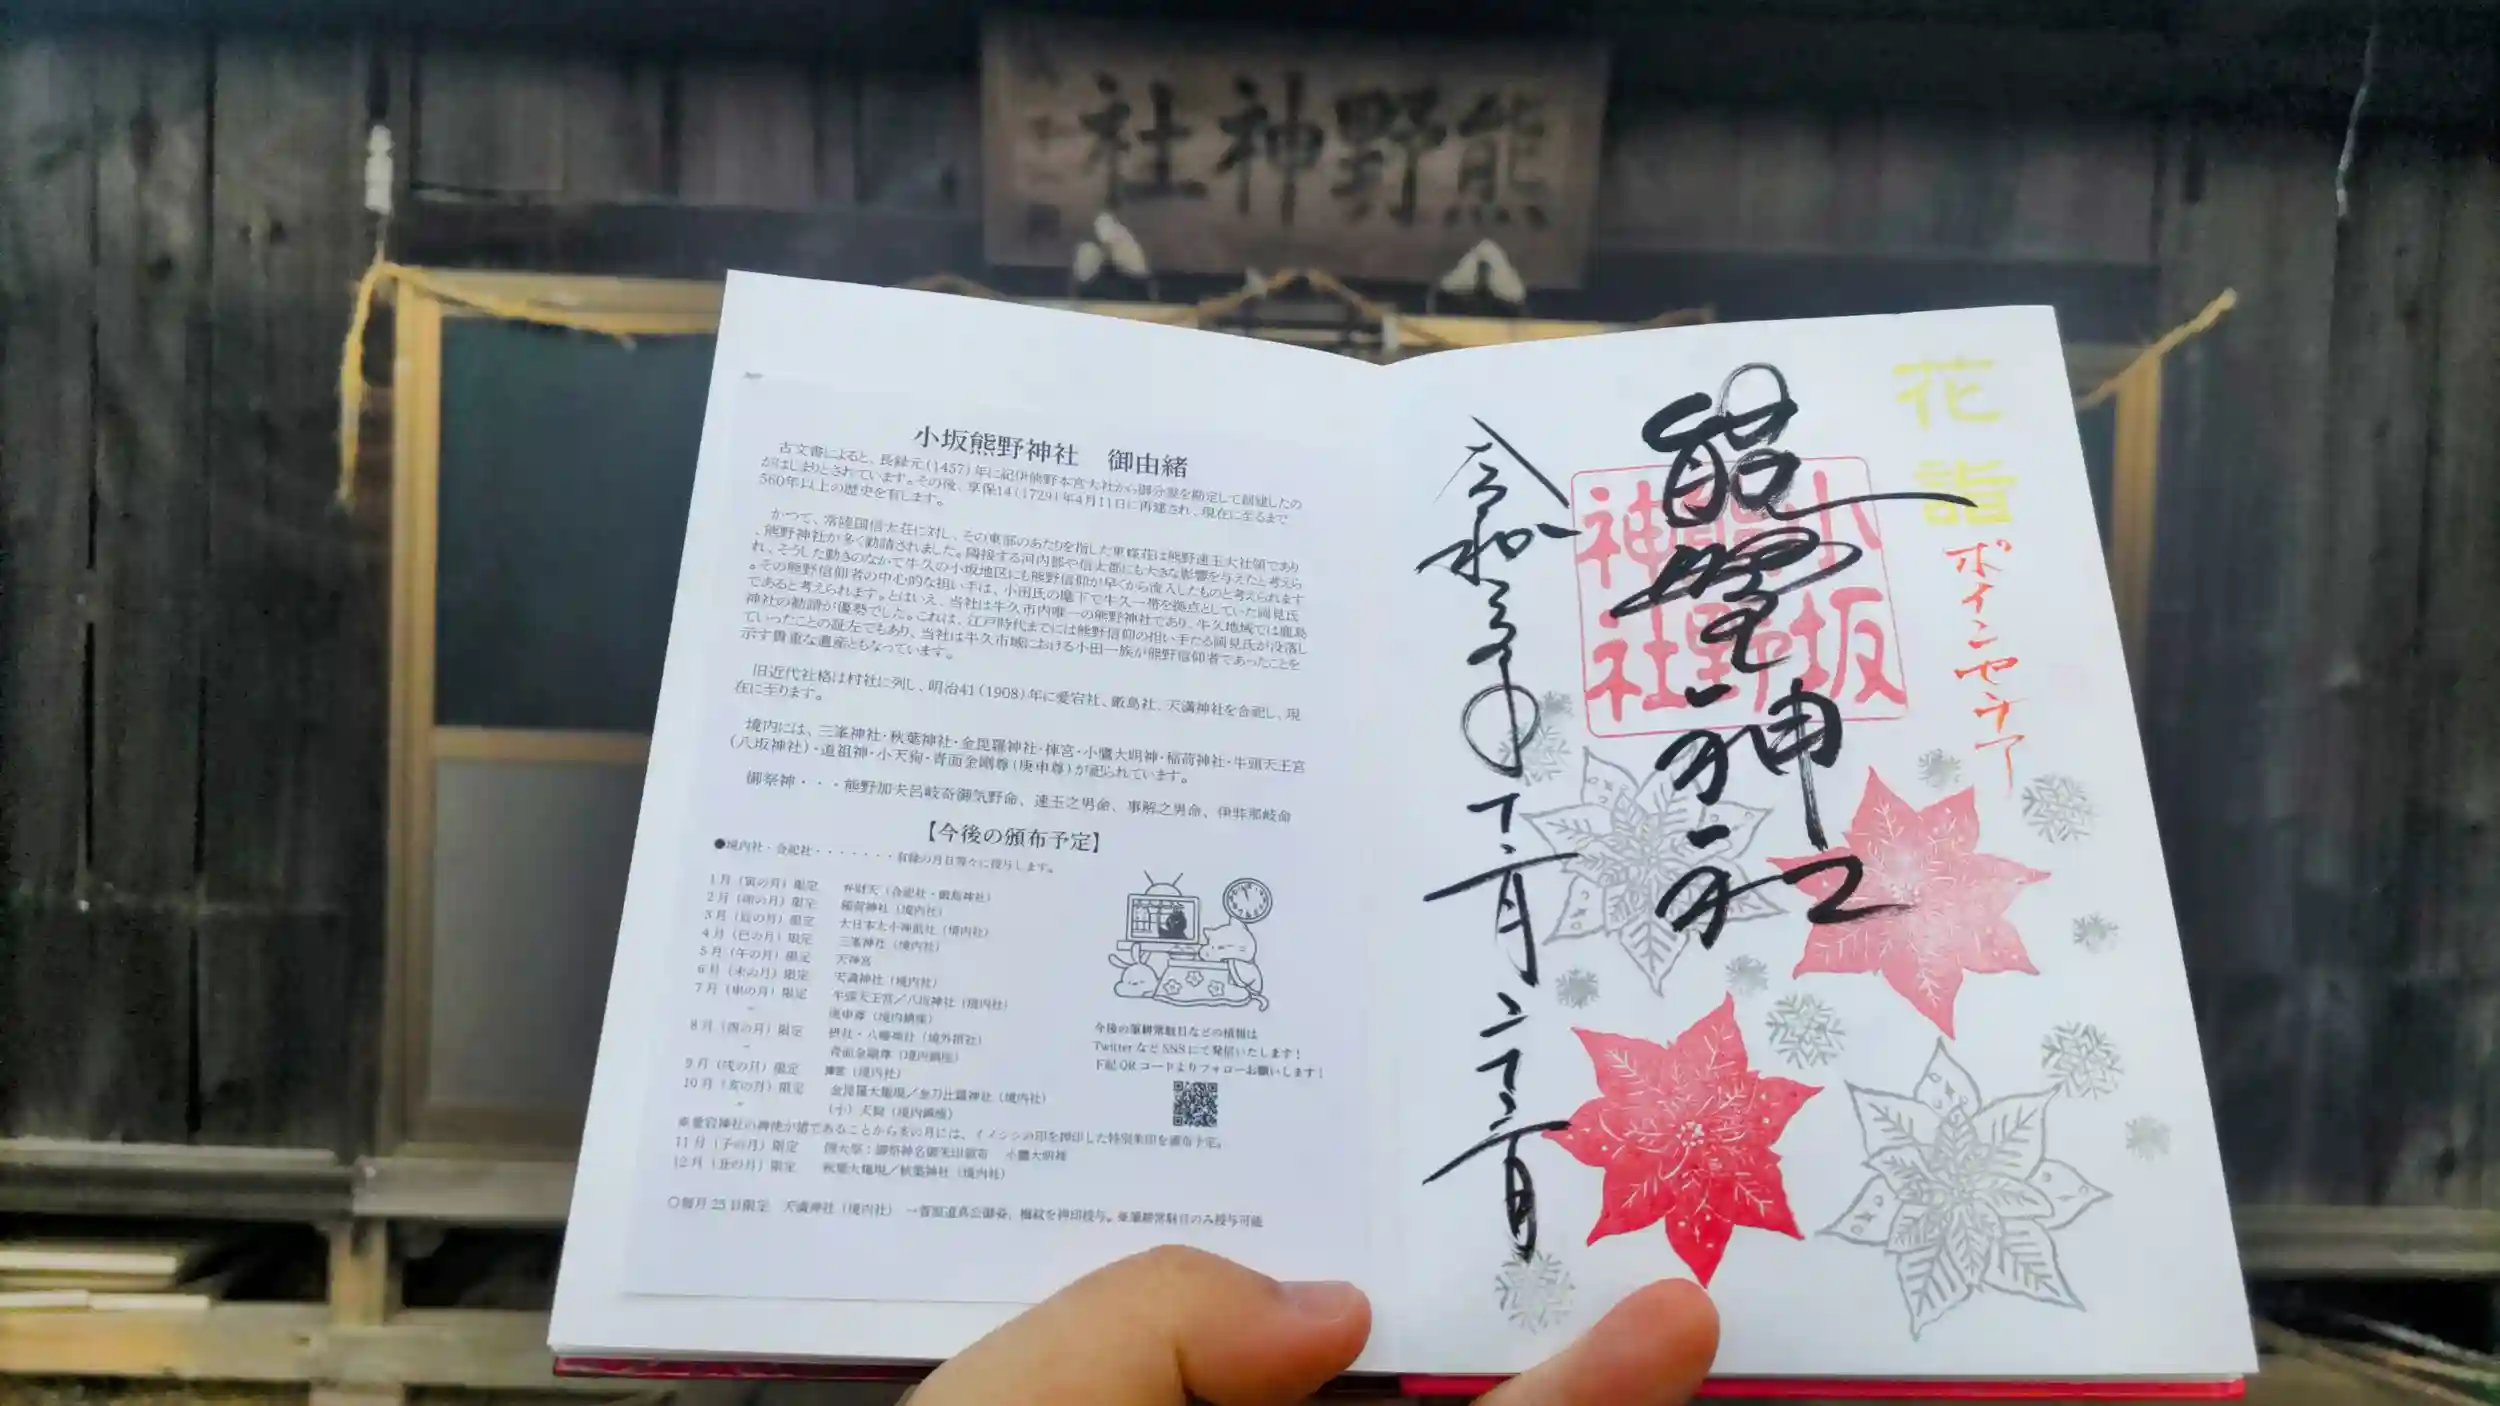 熊野神社
小坂熊野神社　御由緒
古文書によると、長禄元(1457)年に紀伊熊野本宮大社から御分霊を勧定して創建したの
がはじまりとされています。その後、享保14(1729)年4月11日に再建され、現在に至るまで
560年以上の歴史を有します。
かつて、常陸国信太荘に対し、その東部のあたりを指した東條荘は熊野速玉大社領であり
、熊野神社が多く勧請されました。隣接する河内郡や信太郡にも大きな影響を与えたと考えら
れ、そうした動きのなかで牛久の小坂地区にも熊野信仰が早くから流入したものと考えられます
。その熊野信仰者の中心的な担い手は、小田氏の麾下で牛久一帯を拠点としていた岡見氏
であると考えられます。とはいえ、当社は牛久市内唯一の熊野神社であり、牛久地域では鹿島
神社の勧請が優勢でした。これは、江戸時代までには熊野信仰の担い手たる岡見氏が没落し
ていったことの証左でもあり、当社は牛久市域における小田一族が熊野信仰者であったことを
示す貴重な遺産ともなっています。
旧近代社格は村社に列し、明治41(1908)年に愛宕社、厳島社、天満神社を合祀し、現
在に至ります。
境内には、三峯神社・秋葉神社・金毘羅神社・揮宮・小鷹大明神・稲荷神社・牛頭天王宮
(八坂神社)・道祖神・小天狗・青面金剛尊(庚申尊)が祀られています。
御祭神・・・熊野加夫呂岐奇御気野命、速玉之男命、事解之男命、伊弉那岐命
【今後の頒布予定】
●境内社・合祀社・・・・・・・有縁の月日等々に授与します。
1月（寅の月）限定　弁財天（合祀社・厳島神社）
2月（卯の月）限定　稲荷神社（境内社）
3月（辰の月）限定　大日本大小神祇社（境内社）
4月（巳の月）限定　三峯神社（境内社）
5月（午の月）限定　天神宮
6月（未の月）限定　天満神社（境内社）
7月（申の月）限定　牛頭天王宮／八坂神社（境内社）
〃　庚申尊（境内鎮座）
8月（酉の月）限定　摂社・八幡神社（境外摂社）
〃　青面金剛尊（境内鎮座）
9月（戌の月）限定　（境内社）
10月（亥の月）限定　金毘羅大権現／金刀比羅神社（境内社）
〃　（小）天狗（境内鎮座）
※愛宕神社の神使が猪であることから亥の月には、イノシシの印を押印した特別朱印を頒布予定。
11月（子の月）限定　例大祭：御祭神名御朱印頒布　小鷹大明神
12月（丑の月）限定　秋葉大権現／秋葉神社（境内社）
○毎月25日限定　天満神社（境内社）　一菅原道真公御姿、梅紋を押印授与。※筆耕常駐日のみ授与可能
今後の筆耕常駐日などの情報は
TwitterなどSNSにて発信いたします！
下記QRコードよりフォローお願いします！
花詣
ポインセチア
熊野神社
小坂熊野神社
令和
十二月二十